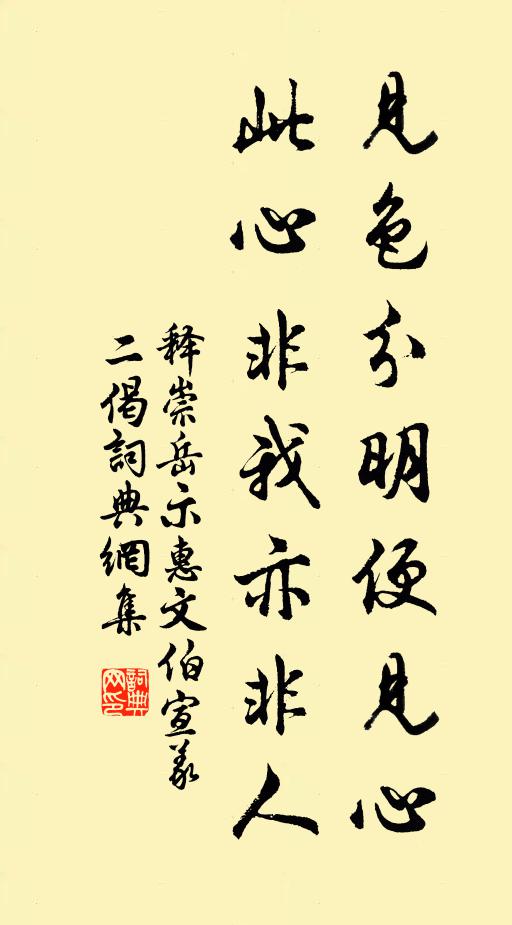 見色分明便見心
此心非我亦非人
释崇岳示惠文伯宣義
二偈詞典網集
詞典網印